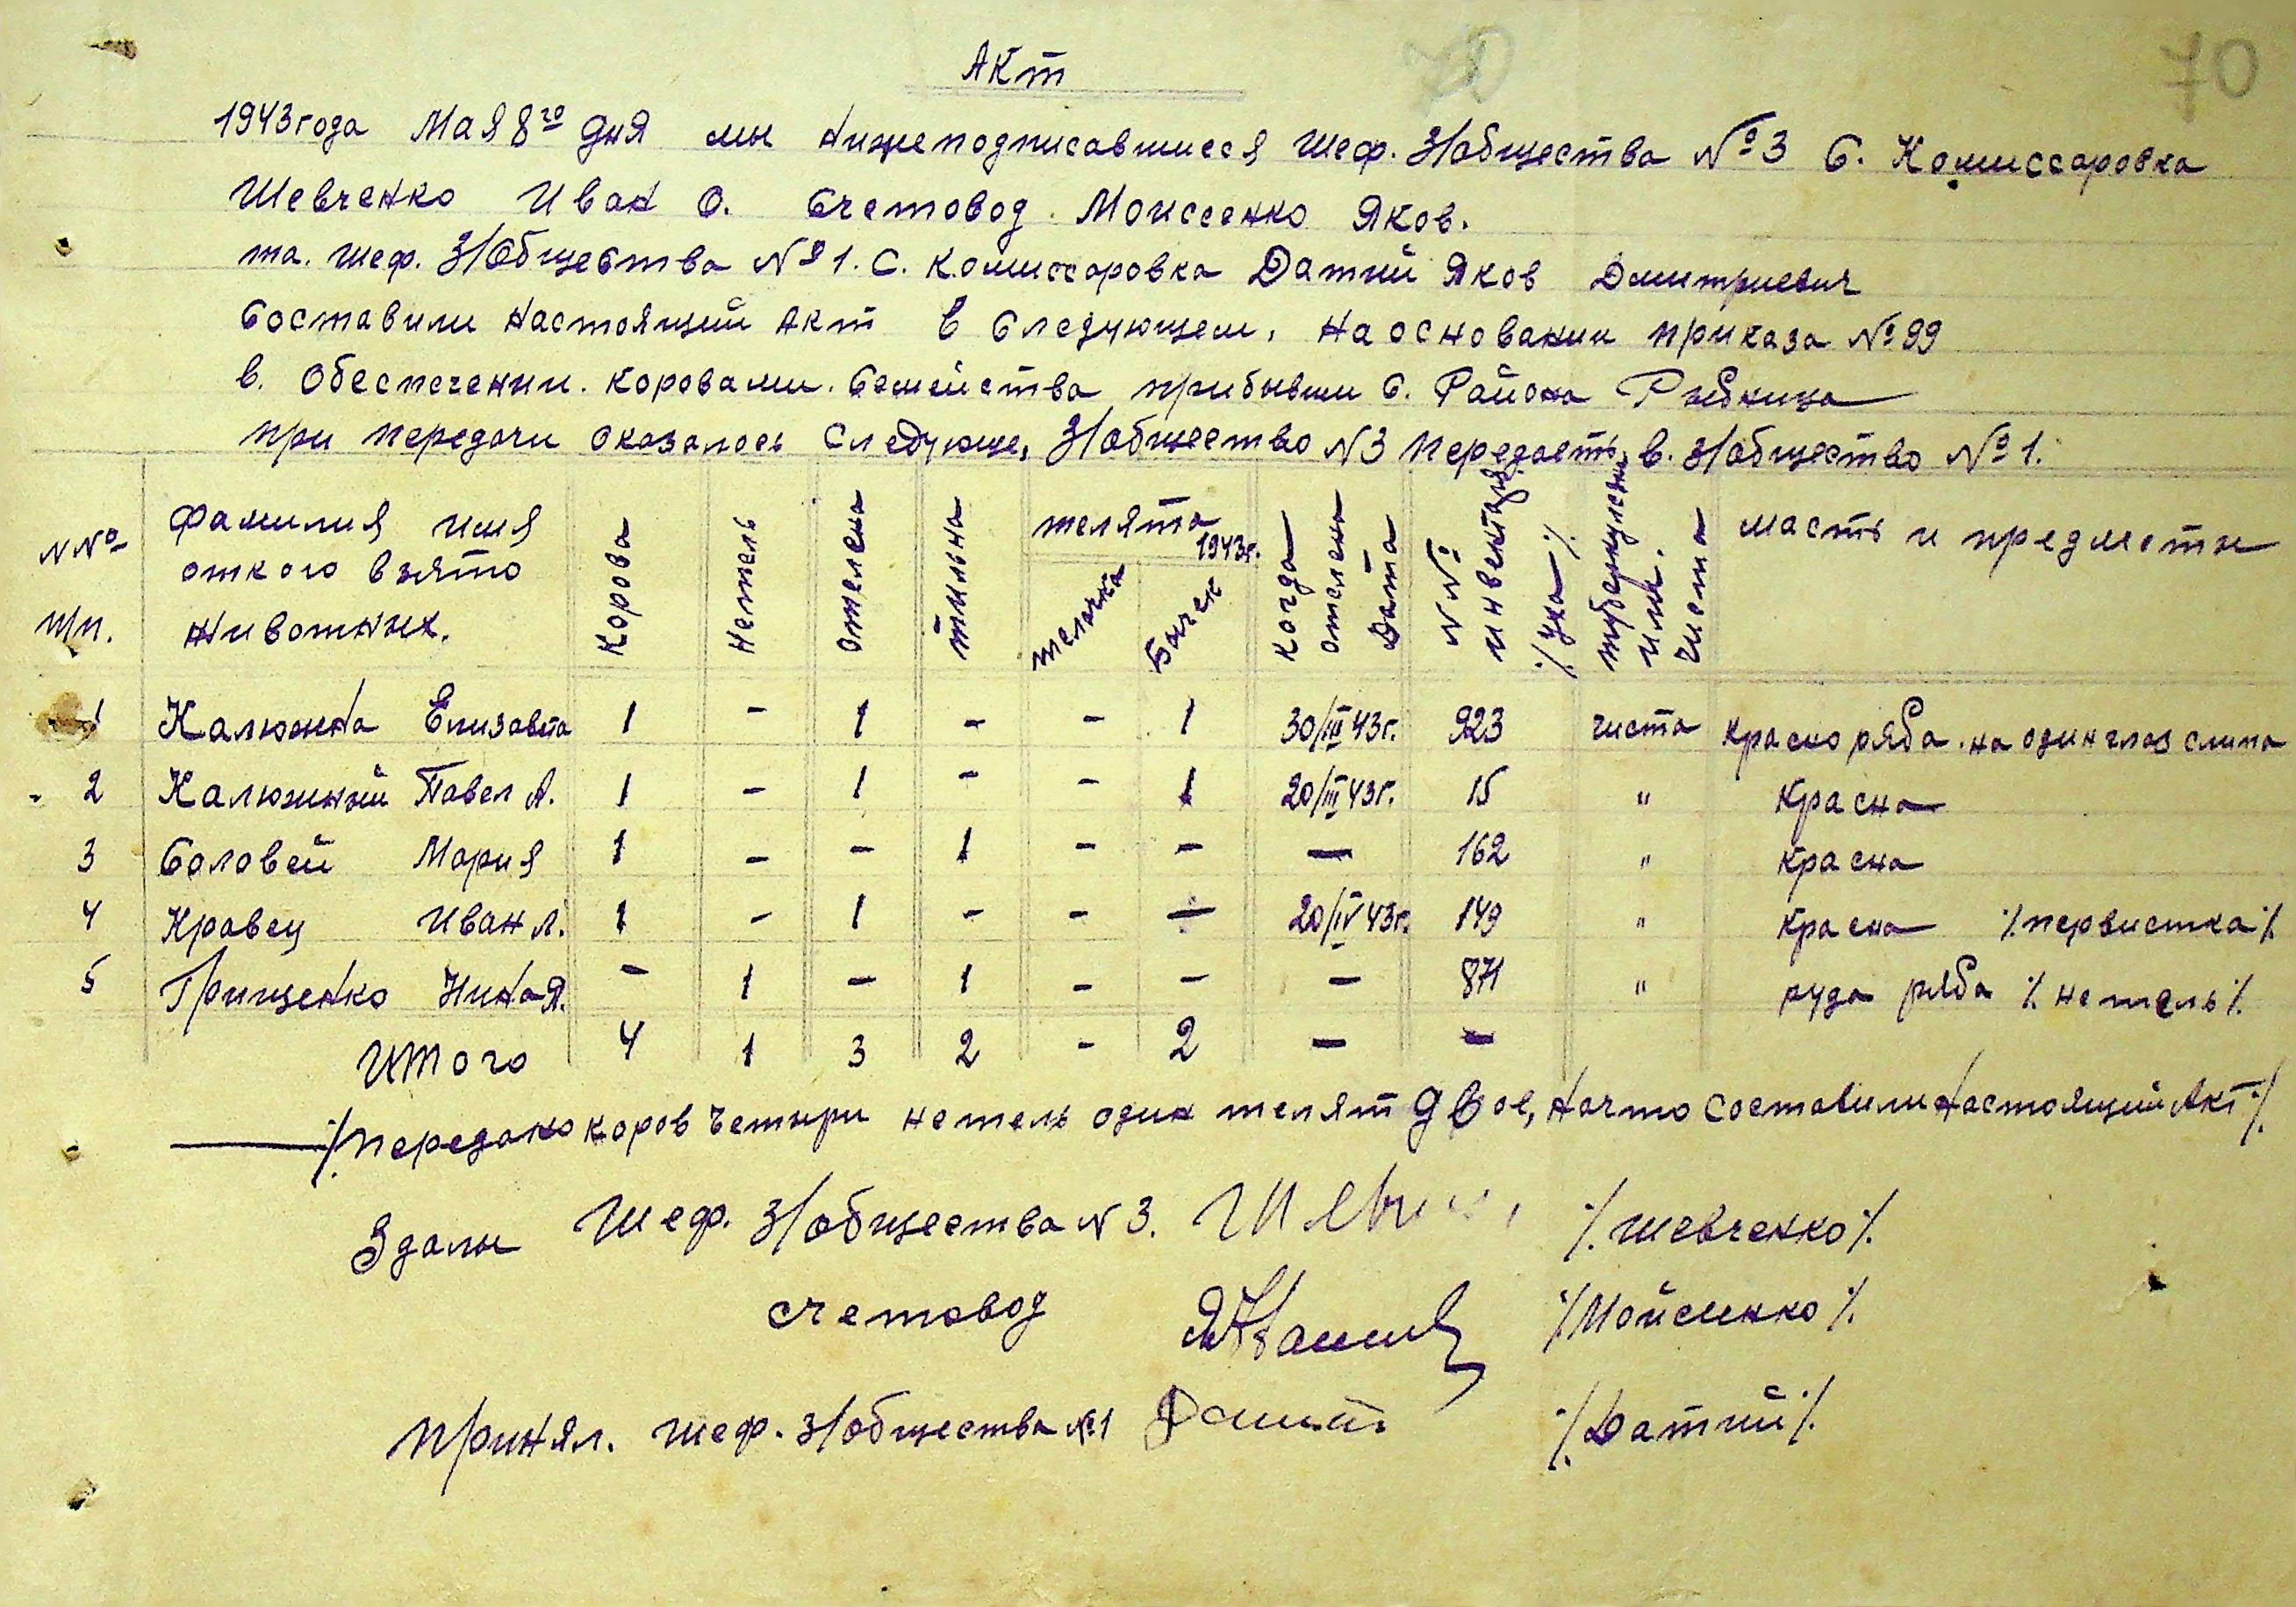 70
Акт
1943 года Мая 8го дня мы нижеподписавшиеся шеф. З/общества №3 С. Комиссаровка
Шевченко Иван О. Счетовод. Моисеенко Яков.
та. шеф. З/Общества №1. С. Комиссаровка Датий Яков Дмитриевич
Составили настоящий акт в Следующем, на основании приказа №99
в. Обеспечении. коровами. Семейства прибывши С. Района Рыбница
при передачи оказалось Следующе, З/общество N3 передаеть в. З/общество №1.
N№ п/п. Фамилия имя откого взято животных. Корова Нетель отелена тильна телята 1943г. телочка Бычек когда отелена Дата N№ инвентаря /.Уха./ туберкулезна или. чиста масть и предметы
1 Калюжна Елизавета 1 - 1 - - 1 30/III 43г. 923 чиста красно ряба. на один глаз слипа
2 Калюжный Павел А. 1 - 1 - - 1 20/III 43г. 15 " Красна
3 Соловей Мария 1 - - 1 - - — 162 " красна
4 Кравец Иван Л. 1 - 1 - - — 20/IV 43г. 149 " красна /.первистка./
5 Грищенко Нина Я. - 1 - 1 - - - 871 " руда ряба /.нетель./
Итого 4 1 3 2 - 2 - -
/.передано коров Четыри нетель один телят двое, начто составили настоящий Акт./
Здалы Шеф. З/общества N 3. /.Шевченко./
счетовод /.Мойсиенко./
принял. шеф. З/общества №1 /.Датий./